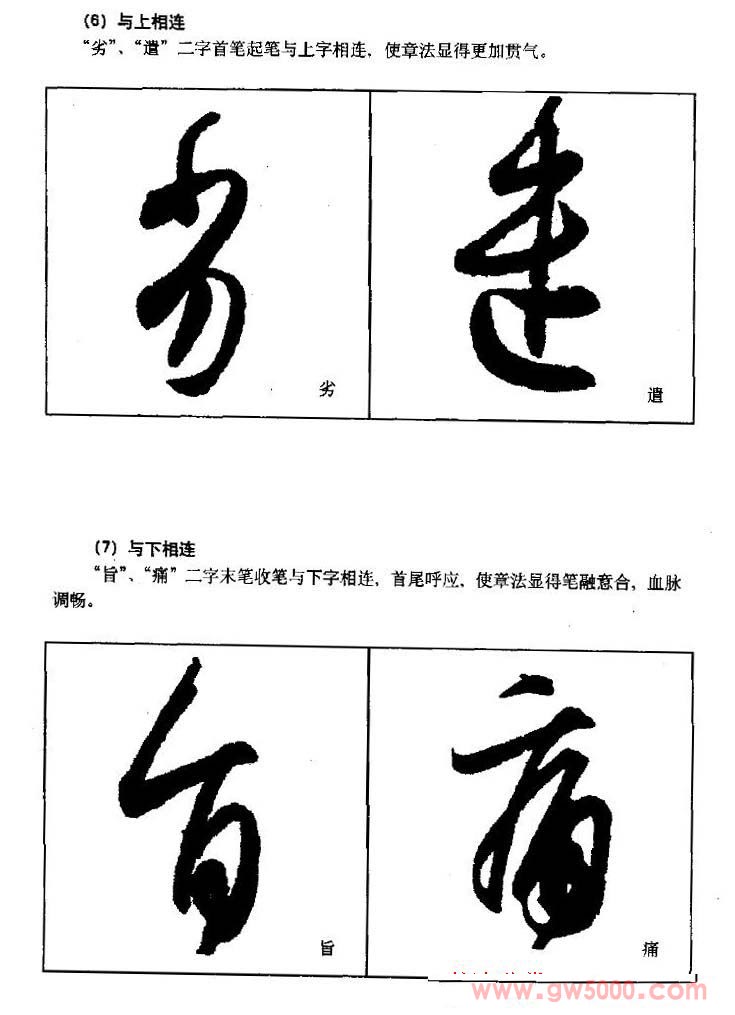 (6) 与上相连
“劣”、“遣”二字首笔起笔与上字相连，使章法显得更加贯气。
劣 遣
劣 遣
(7) 与下相连
“旨”、“痛”二字末笔收笔与下字相连，首尾呼应，使章法显得笔融意合，血脉
调畅。
旨 痛
旨 痛
www.gw5000.com